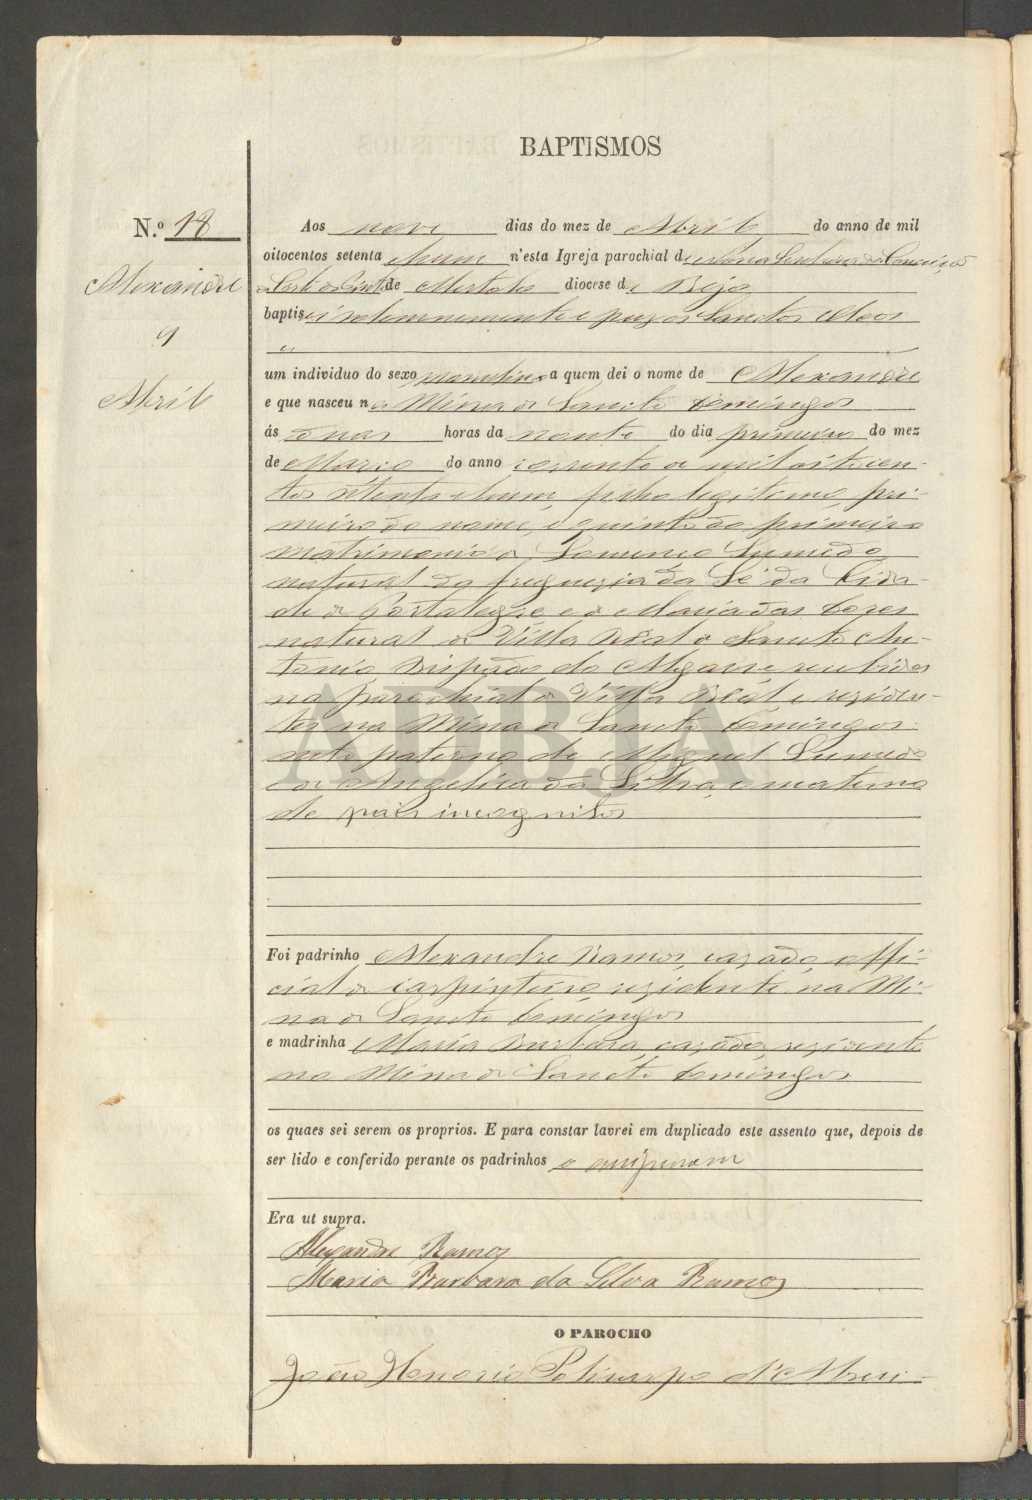 BAPTISMOS
N.º 18
Alexandre
9
Abril
Aos nove dias do mez de Abril do anno de mil
oitocentos setenta e hum n'esta Igreja parochial de Nossa Senhora da Conceição
de Mertola diocese de Beja
baptisei solemnemente e puz os Sanctos Oleos
um individuo do sexo masculino a quem dei o nome de Alexandre
e que nasceu na Mina de Sancto Domingos
ás duas horas da noute do dia primeiro do mez
de Março do anno corrente de mil oito cen-
tos setenta e hum filho legitimo pri-
meiro do nome, e quinto do primeiro
matrimonio de Lourenço Sumido
natural da freguezia da Sé da Cida-
de de Portalegre e de Maria das Dores
natural de Villa Real de Sancto An-
tonio Bispado do Algarve recebidos
na parochial de Villa Real e reziden-
tes na Mina de Sancto Domingos
neto paterno de Miguel Sumido
e de Angelica da Silva, e materno
de pais incognitos
Foi padrinho Alexandre Ramos, cazado, offi-
cial de carpinteiro rezidente na Mi-
na de Sancto Domingos
e madrinha Maria Barbara, cazada, rezidente
na Mina de Sancto Domingos
os quaes sei serem os proprios. E para constar lavrei em duplicado este assento que, depois de
ser lido e conferido perante os padrinhos o assignaram
Era ut supra.
Alexandre Ramos
Maria Barbara da Silva Ramos
O PAROCHO
João Honorio Policarpo d'Abreu
ADBJA